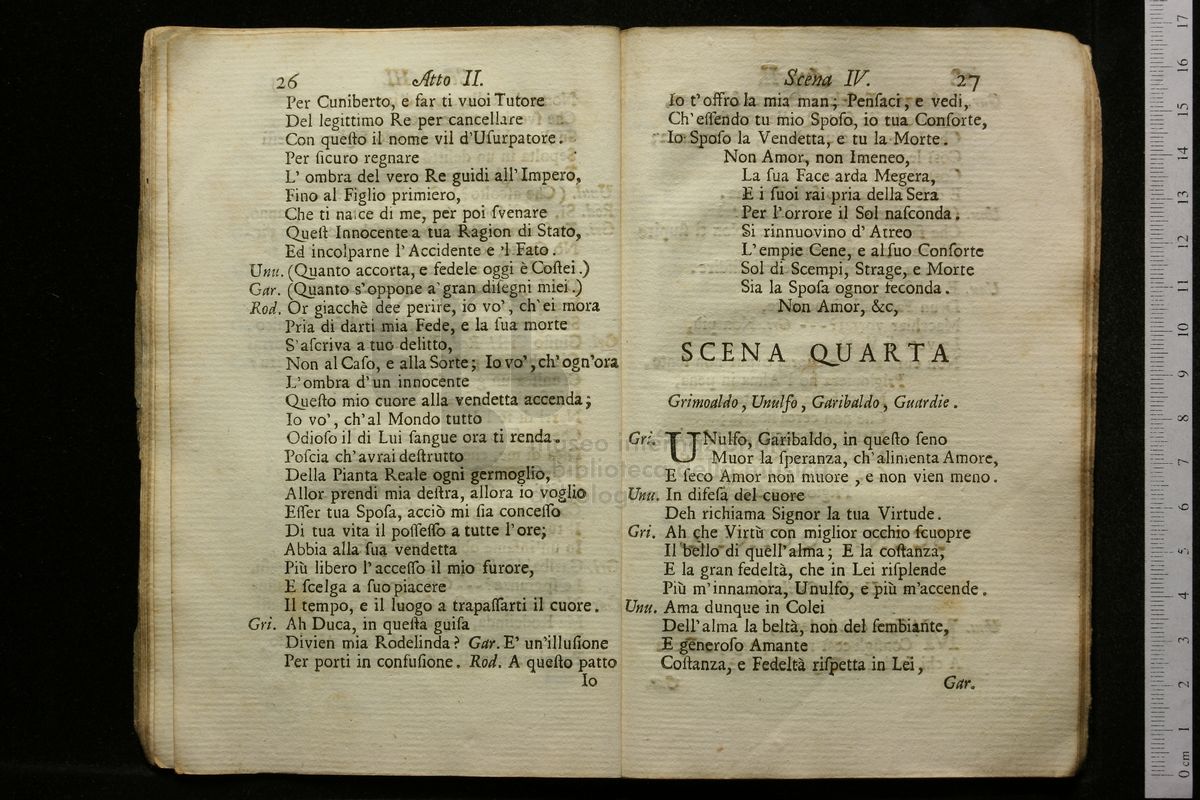 26 Atto II.
Per Cuniberto, e far ti vuoi Tutore
Del legittimo Re per cancellare
Con queſto il nome vil d'Uſurpatore.
Per ſicuro regnare
L' ombra del vero Re guidi all' Impero,
Fino al Figlio primiero,
Che ti naſce di me, per poi ſvenare
Queſt Innocente a tua Ragion di Stato,
Ed incolparne l' Accidente e 'l Fato.
Unu. (Quanto accorta, e fedele oggi è Coſtei.)
Gar. (Quanto s' oppone a' gran diſegni miei.)
Rod. Or giacchè dee perire, io vo', ch' ei mora
Pria di darti mia Fede, e la ſua morte
S'aſcriva a tuo delitto,
Non al Caſo, e alla Sorte; Io vo', ch' ogn'ora
L'ombra d'un innocente
Queſto mio cuore alla vendetta accenda;
Io vo', ch'al Mondo tutto
Odioſo il di Lui ſangue ora ti renda.
Poſcia ch'avrai deſtrutto
Della Pianta Reale ogni germoglio,
Allor prendi mia deſtra, allora io voglio
Eſſer tua Spoſa, acciò mi ſia conceſſo
Di tua vita il poſſeſſo a tutte l' ore;
Abbia alla ſua vendetta
Più libero l' acceſſo il mio furore,
E ſcelga a ſuo piacere
Il tempo, e il luogo a trapaſſarti il cuore.
Gri. Ah Duca, in queſta guiſa
Divien mia Rodelinda? Gar. E' un'illuſione
Per porti in confuſione. Rod. A queſto patto
Io
Scena IV. 27
Io t'offro la mia man; Penſaci, e vedi,
Ch' eſſendo tu mio Spoſo, io tua Conſorte,
Io Spoſo la Vendetta, e tu la Morte.
Non Amor, non Imeneo,
La ſua Face arda Megera,
E i ſuoi rai pria della Sera
Per l'orrore il Sol naſconda.
Si rinnuovino d' Atreo
L'empie Cene, e al ſuo Conſorte
Sol di Scempi, Strage, e Morte
Sia la Spoſa ognor feconda.
Non Amor, &c,
SCENA QUARTA
Grimoaldo, Unulfo, Garibaldo, Guardie.
Gri. UNulfo, Garibaldo, in queſto ſeno
Muor la ſperanza, ch'alimenta Amore,
E ſeco Amor non muore, e non vien meno.
Unu. In difeſa del cuore
Deh richiama Signor la tua Virtude.
Gri. Ah che Virtù con miglior occhio ſcuopre
Il bello di quell'alma; E la coſtanza,
E la gran fedeltà, che in Lei riſplende
Più m'innamora, Unulfo, e più m'accende.
Unu. Ama dunque in Colei
Dell'alma la beltà, non del ſembiante,
E generoſo Amante
Coſtanza, e Fedeltà riſpetta in Lei,
Gar.